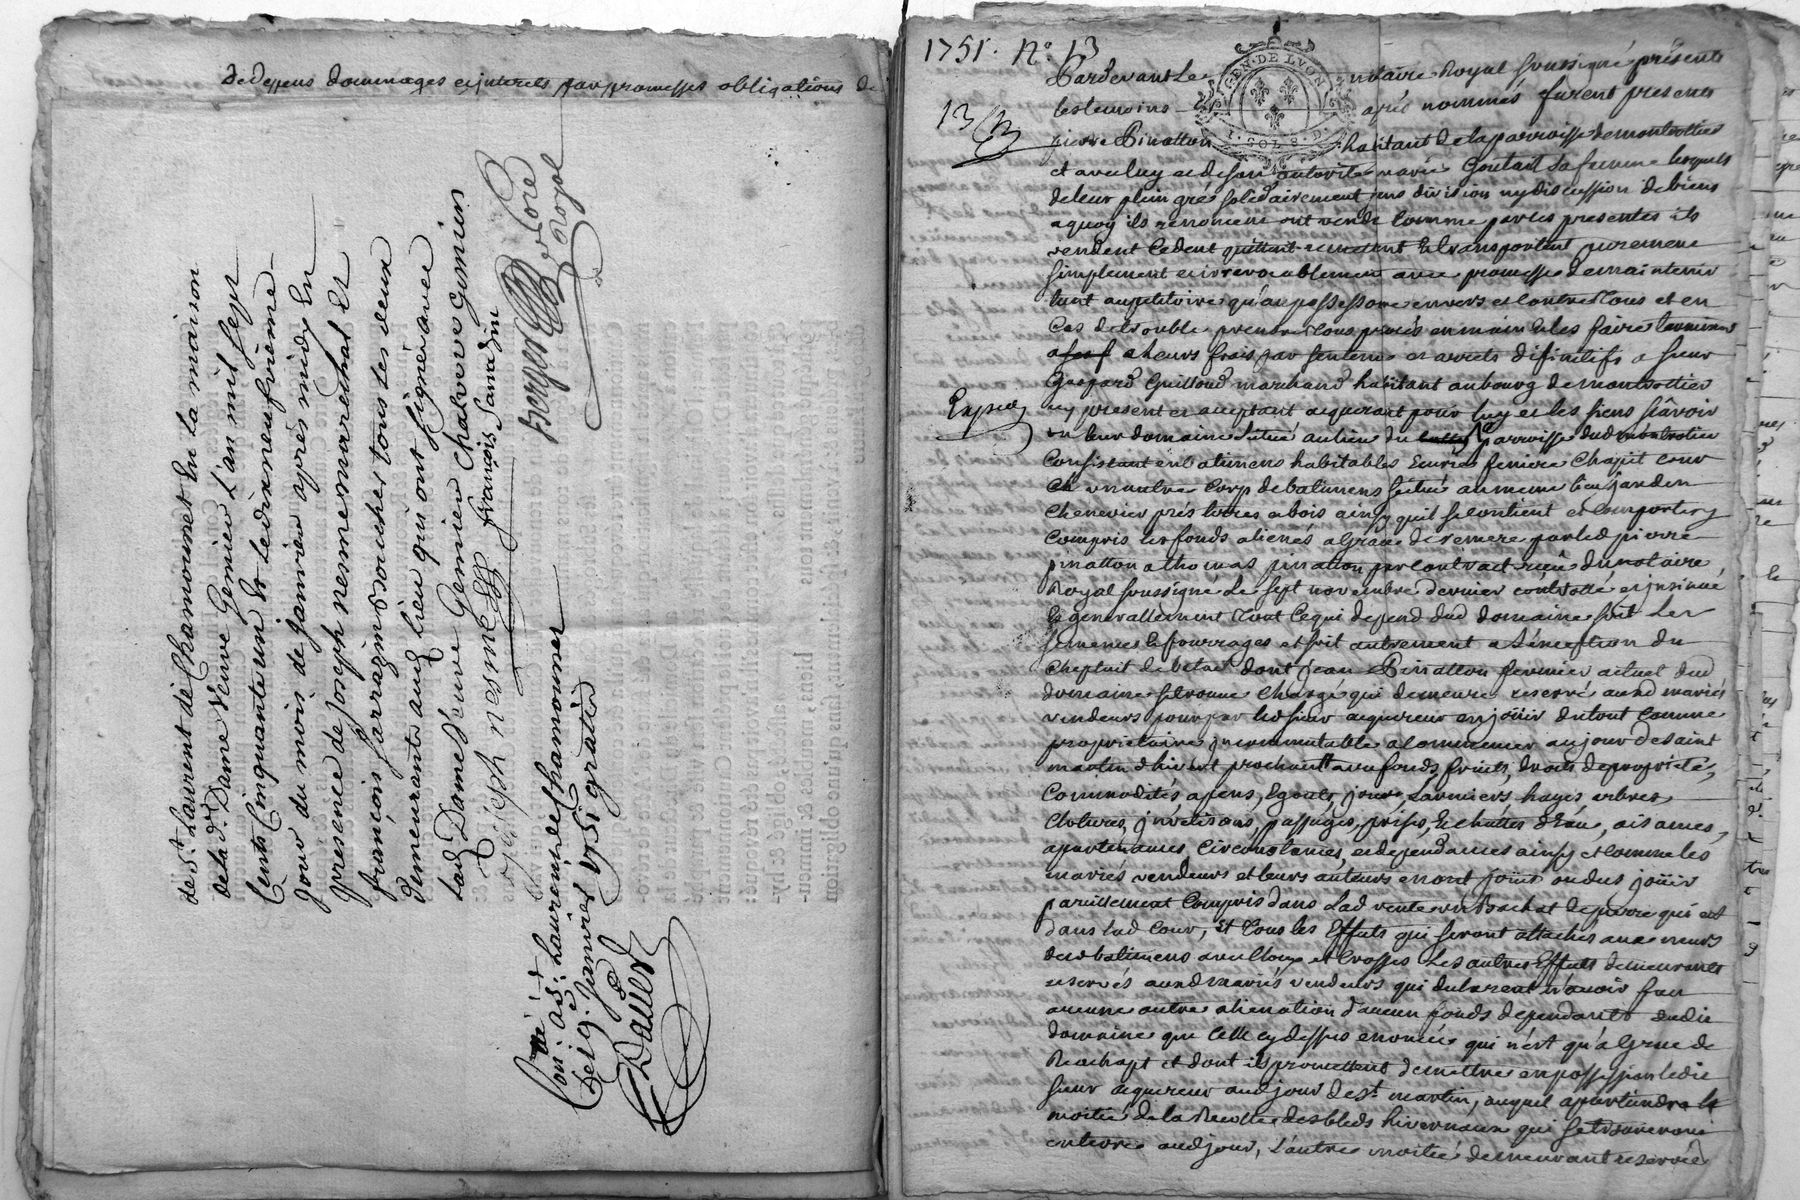 de depens dommages et interets par promesses obligations de
de St. Laurent de Chamousset En la maison
de lad. Dame Veuve Gemier L'an mil sept
Cents Cinquante un & le dixneufvieme
Jour du mois de Janvier après midy En
presence de Joseph nesme marechal Et
françois Sarrazin tous les deux
demeurants aud. Lieu qui ont signé avec
lad. Dame Veuve Gemier Chalavve Gemier
Joseph nesme françois Saradin
Berger
Noé. Royal
Con.lé à St. Laurent de Chamousset
le 19. Janvier 1751 gratis
Dauer
1751. N.o 13
GEN. DE LYON
I. SOL 8. D.
13
Pardevant Le notaire Royal soussigné présents
les temoins après nommés furent presents
pierre Pinatton habitant de la parroisse de montrottier
et avec luy et de son autorité marie Goutard sa femme lesquels
de leur plein gré solidairement sans division ny discussion de biens
a quoy ils renoncent ont vendu Comme par les presentes ils
vendent Cedent quittent remettent Et transportent purement
simplement et irrevocablement avec promesse de maintenir
tant au petitoire qu'au possessoire envers et Contre Tous et en
Cas de trouble prendre Tous procés en main Et les faire terminer
a leurs frais par sentence et arrets difinitifs a sieur
Gaspard Guilloud marchand habitant au bourg de montrottier
Expié
icy present et acceptant acquerant pour luy et les siens sçavoir
un leur domaine Situé au lieu du parroisse dud montrotier
Consistant en batimens habitables Ecuries feniere Chapit cour
en un autre Corp de batimens scitué au meme lieu jardin
Chenevier prés terres et bois ainsy quil se contient et Comporte y
Compris les fonds alienés a Grace de remere par led pierre
pinatton a thomas pinatton par Contract reçu du notaire
Royal soussigné Le sept novembre dernier contrôllé et insinué
Et generallement Tout Ce qui depend dud domaine soit Les
semences Et fourrages et soit autrement a L'exception du
Cheptail de betail dont jean Pinatton fermier actuel dud
domaine se trouve Chargé qui demeure reservé aud mariés
vendeurs pour par led sieur acquereur en joüir du tout Comme
proprietaire incommutable a Commencer au jour de saint
martin d'hivert prochain avec fonds, fruits, droits de proprieté,
Commodités, apens, Egouts, jours, Larmiers, hayes arbres
Clotures, invetisons, passages, prises, Et chuttes d'Eau, aisances,
apartenances, Circonstances, et dependances ainsy et Comme les
mariés vendeurs et leurs auteurs en ont joüi ou dus joüir
pareillement Compris dans Lad vente un Bachat de pierre qui est
dans lad Cour, Et Tous les Effets qui seront attachés aux murs
desd batimens Les autres Effets demeurants
reservés aux mariés vendeurs qui declarent n'avoir fait
aucune autre alienation d'aucun fonds dependants dudit
domaine que Celle cy dessus enoncée qui n'est qu'à Grace de
Reachapt et dont ils promettent de mettre en possession ledit
sieur acquereur aud jour de St. martin, auquel apartiendra la
moitié de la Recolte des bleds hivernaux qui se trouveront
en terre aud jour, L'autre moitié demeurant reservée